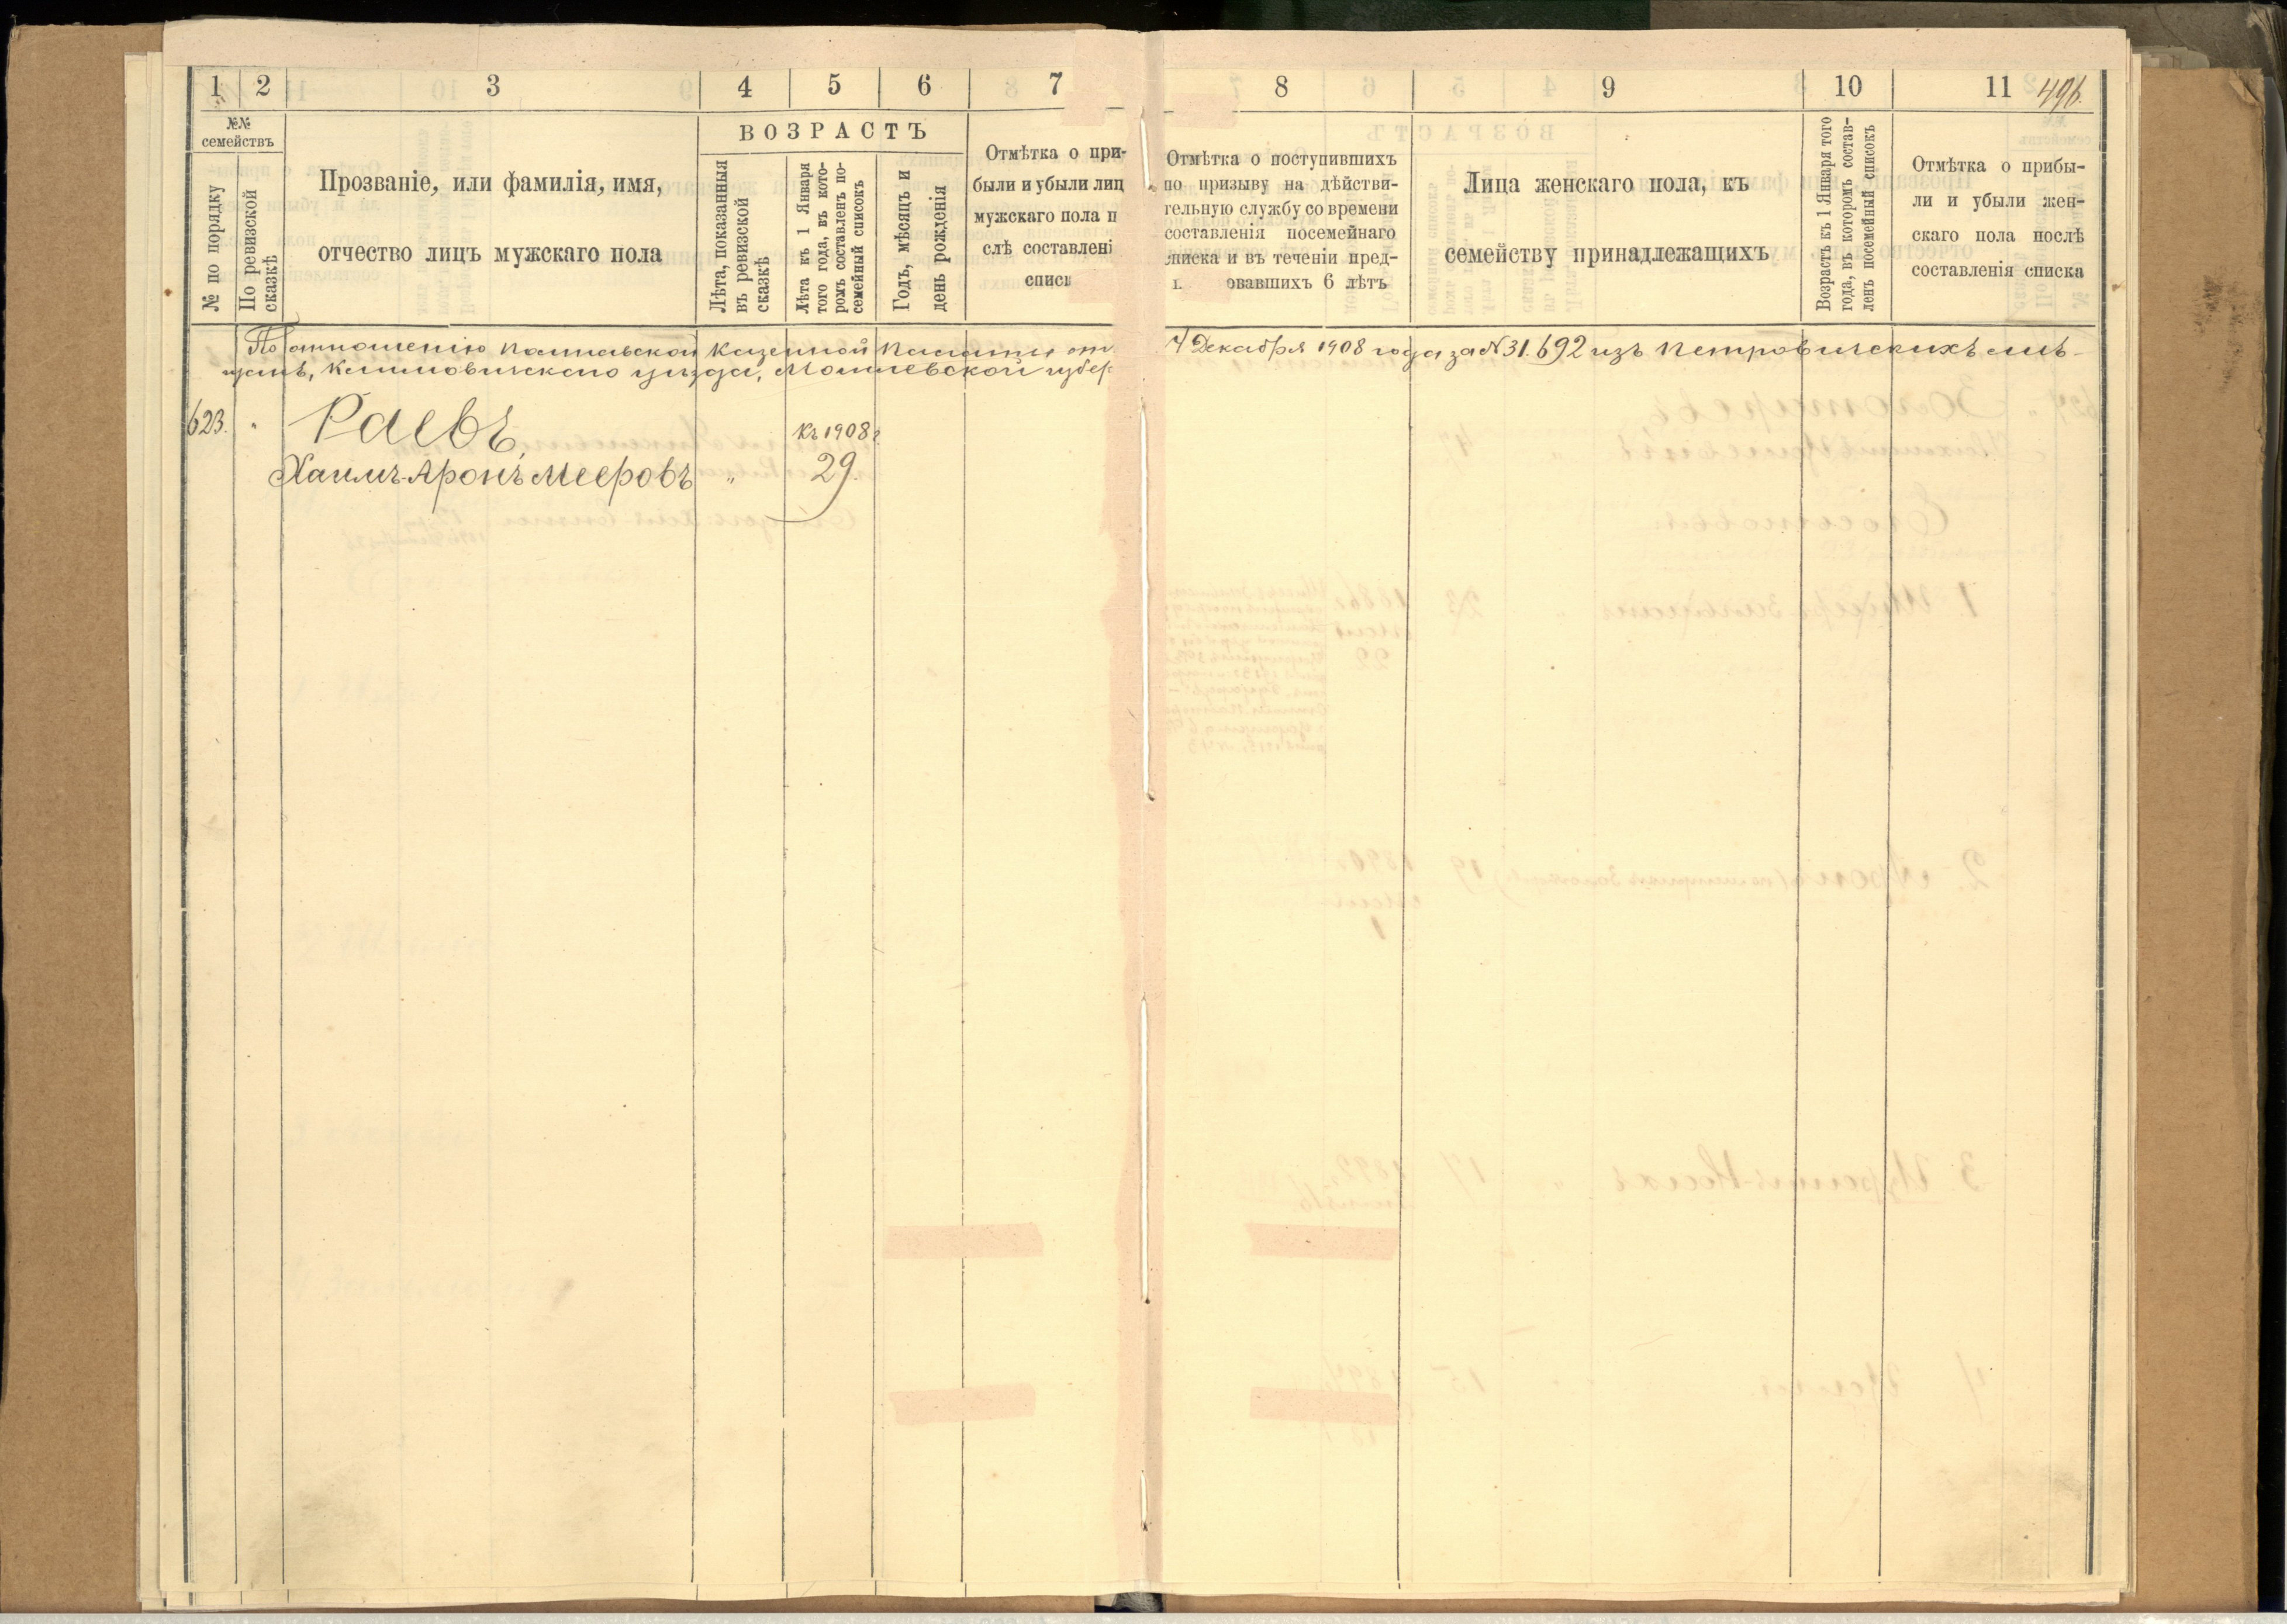 1 2 3 4 5 6 7 8 9 10 11 496.
№№ семействъ
№ по порядку
По ревизской сказкѣ
Прозваніе, или фамилія, имя,
отчество лицъ мужскаго пола
ВОЗРАСТЪ
Лѣта, показанныя
въ ревизской
сказкѣ
Лѣта къ 1 Января
того года, въ кото-
ромъ составленъ по-
семейный списокъ
Годъ, мѣсяцъ и
день рожденія
Отмѣтка о при-
были и убыли лиц
мужскаго пола п
слѣ составлені
списк
Отмѣтка о поступившихъ
по призыву на дѣйстви-
тельную службу со времени
составленія посемейнаго
списка и въ теченіи пред-
овавшихъ 6 лѣтъ
Лица женскаго пола, къ
семейству принадлежащихъ
Возрастъ къ 1 Января того
года, въ которомъ состав-
ленъ посемейный списокъ
Отмѣтка о прибы-
ли и убыли жен-
скаго пола послѣ
составленія списка
По отношенію Полтавской Казенной Палаты от 4 Декабря 1908 года за N 31.692 изъ Петровичскихъ мѣ-
щанъ, Климовичскаго уѣзда, Могилевской губер
623. " Раевъ, къ 1908 г.
Хаимъ-Аронъ Мееровъ " 29.